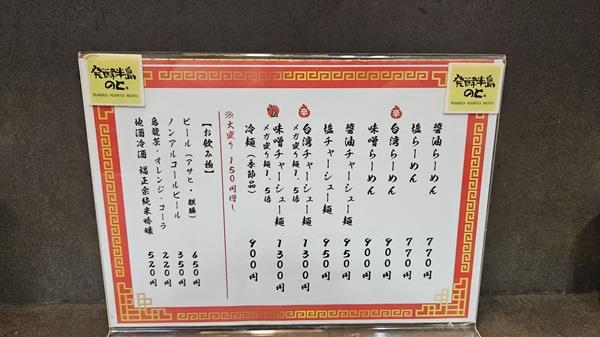 発酵半島
のと。
HAKKO HANTO NOTO
発酵半島
のと。
HAKKO HANTO NOTO
醤油らーめん 770円
塩らーめん 770円
辛
台湾らーめん 900円
味噌らーめん 900円
醤油チャーシュー麺 950円
塩チャーシュー麺 950円
辛
台湾チャーシュー麺 1300円
メガ盛り麺1.5倍
味噌チャーシュー麺 1300円
メガ盛り麺1.5倍
冷麺(季節品) 900円
※大盛り 150円増し
【お飲み物】
ビール(アサヒ・麒麟) 650円
ノンアルコールビール 350円
烏龍茶・オレンジ・コーラ 220円
地酒冷酒 福正宗純米吟醸 520円